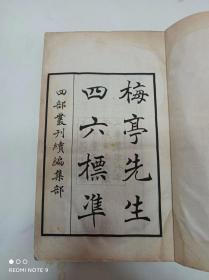 梅亭先生
四六標準
四部叢刊續編集部
REDMI NOTE 9